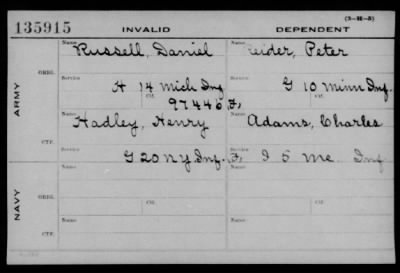 (3-2-3)
135915 INVALID DEPENDENT
ARMY
ORIG.
Name Russell, Daniel Name eider, Peter
Service H 14 Mich Inf Service G 10 Minn Inf.
Of. 97445 Of.
CTF.
Name Hadley, Henry Name Adams, Charles
Service G 20 N Y Inf. Service I 5 Me. Inf
NAVY
ORIG.
Name Of. Name Of.
Service Service
CTF.
Name Name